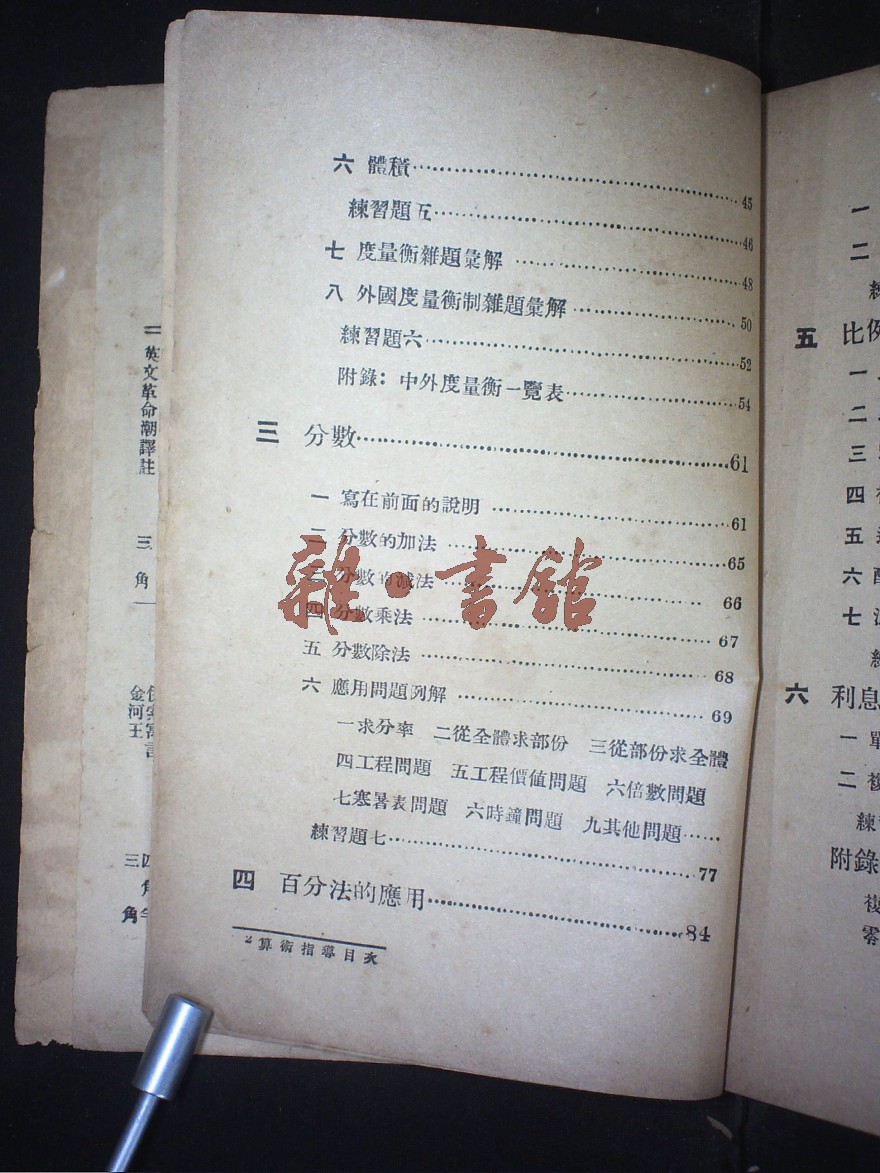 六 體積……45
練習題五……46
七 度量衡雜題彙解……48
八 外國度量衡制雜題彙解……50
練習題六……52
附錄：中外度量衡一覽表……54
三 分數……61
一 寫在前面的說明……61
二 分數的加法……65
三 分數的減法……66
四 分數乘法……67
五 分數除法……68
六 應用問題例解……69
一求分率 二從全體求部份 三從部份求全體
四工程問題 五工程價值問題 六倍數問題
七寒暑表問題 六時鐘問題 九其他問題……
練習題七……77
四 百分法的應用……84
2 算術指導目次
雜·書館
二 英文革命潮譯註
三角
金河王
三四
角
角
一
二
五 比例
一
二
三
四
五
六
七
六 利息
一 單
二 複
練習
附錄
複
零